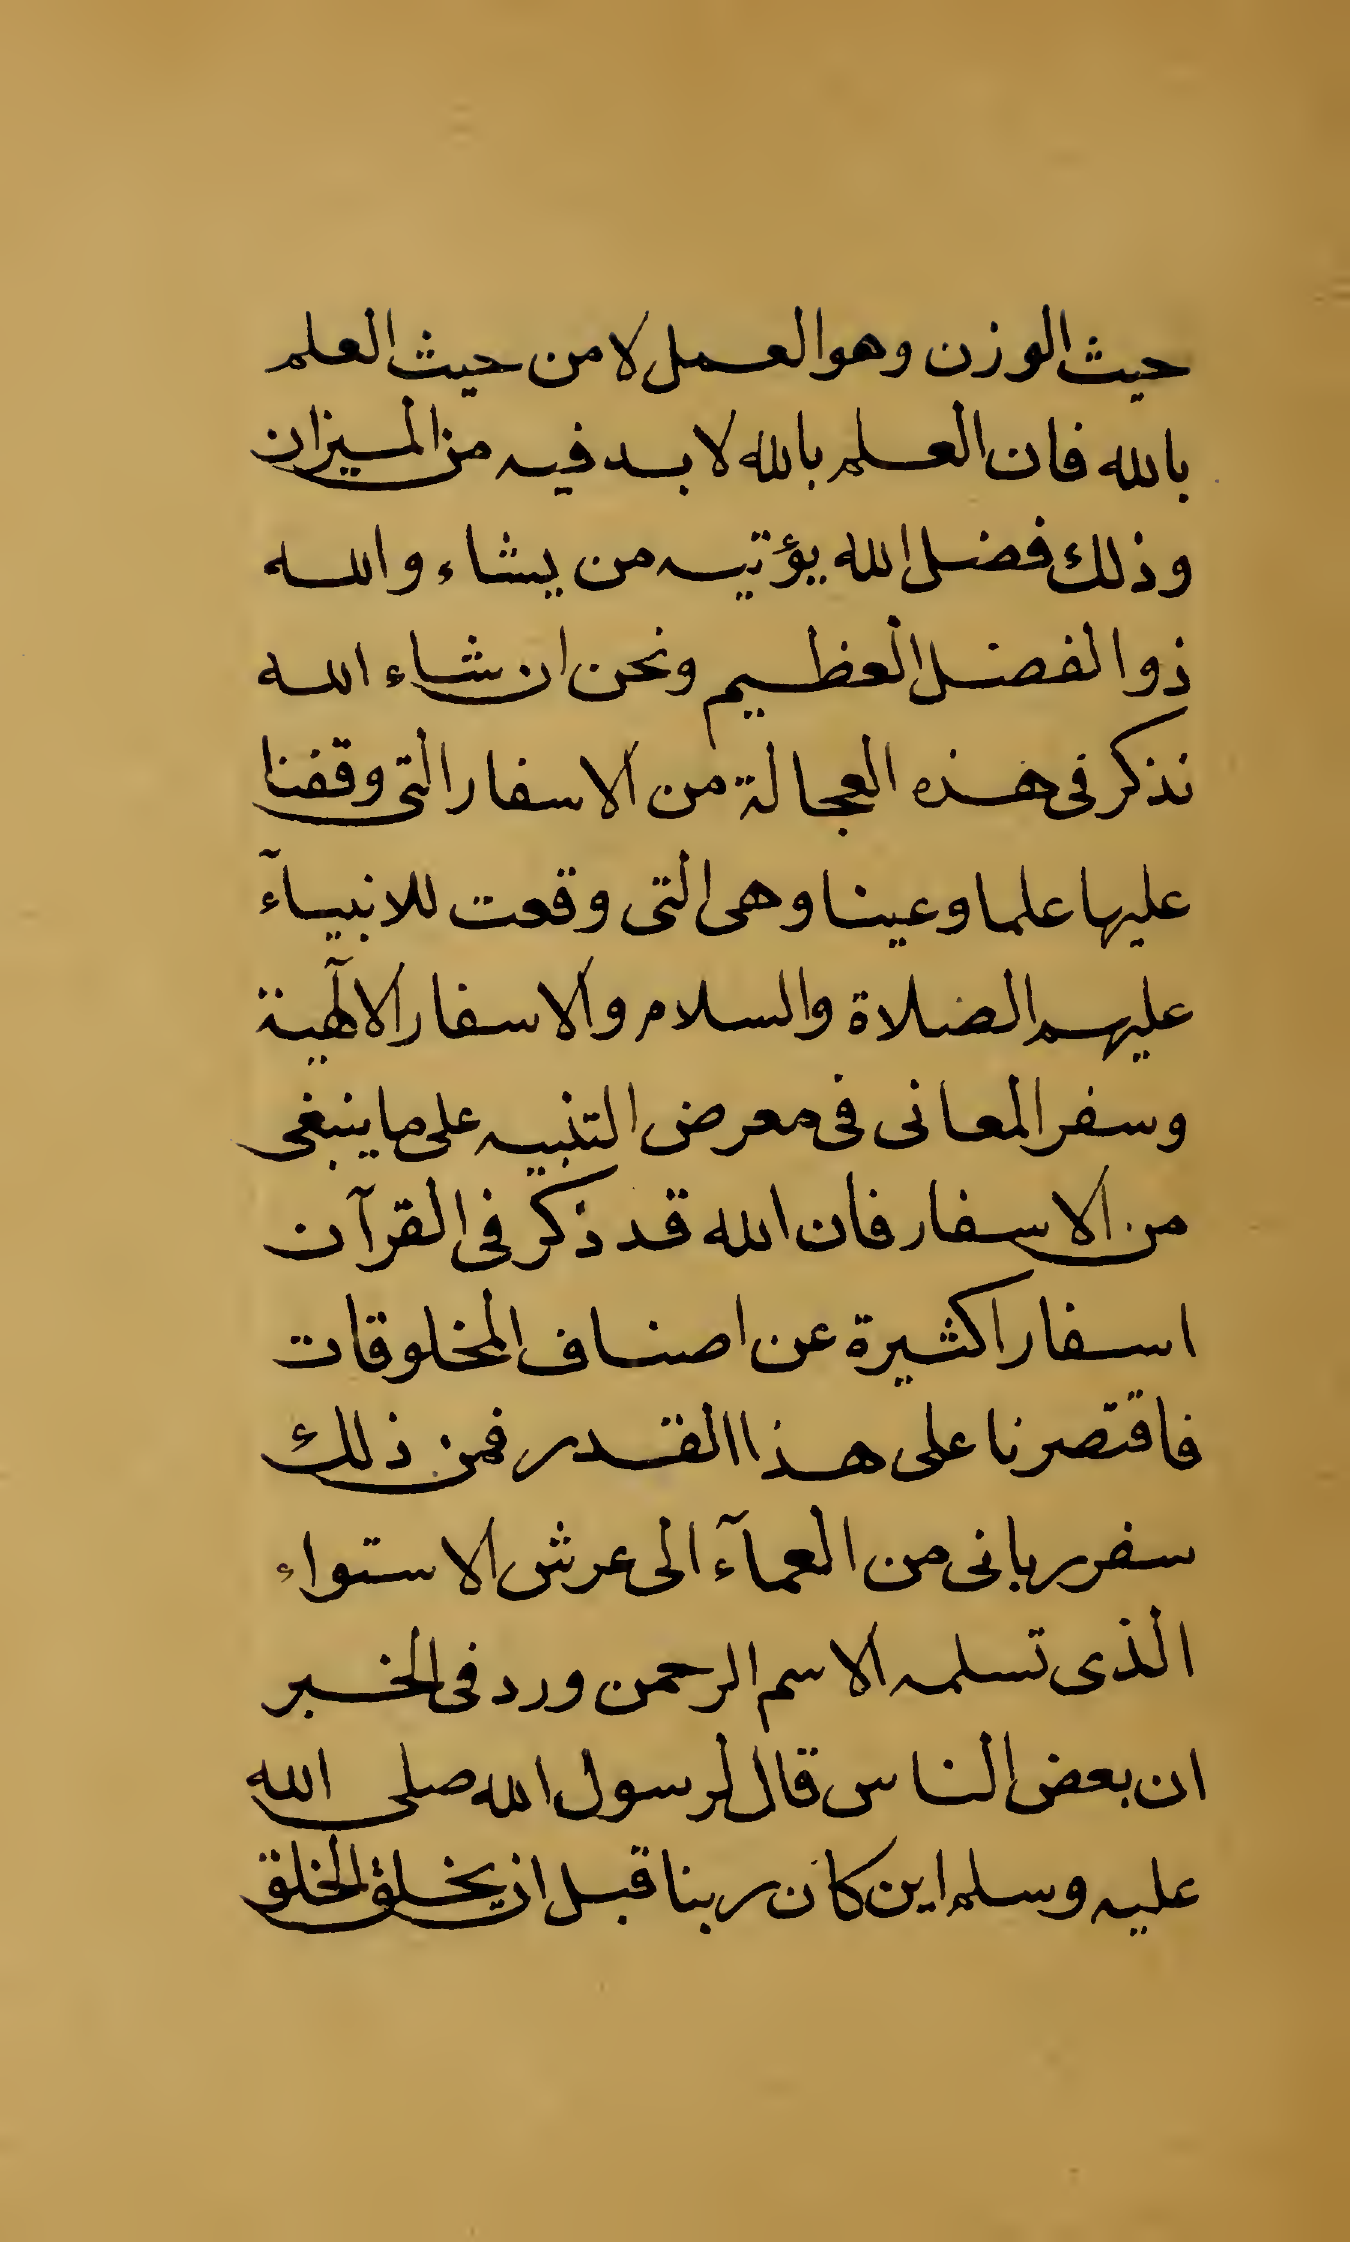 حيث الوزن وهو العمل لا من حيث العلم
بالله فان العلم بالله لا بد فيه من الميزان
وذلك فضل الله يؤتيه من يشاء والله
ذو الفضل العظيم ونحن ان شاء الله
نذكر فى هذه العجالة من الاسفار التى وقفنا
عليها علما وعينا وهى التى وقعت للانبيآء
عليهم الصلاة والسلام والاسفار الالٓهية
وسفر المعانى فى معرض التنبيه على ما ينبغى
من الاسفار فان الله قد ذكر فى القرآن
اسفارا كثيرة عن اصناف المخلوقات
فاقتصرنا على هذا القدر فمن ذلك
سفر ربانى من العمآء الى عرش الاستواء
الذى تسلمه الاسم الرحمن ورد فى الخبر
ان بعض الناس قال لرسول الله صلى الله
عليه وسلم اين كان ربنا قبل ان يخلق الخلق